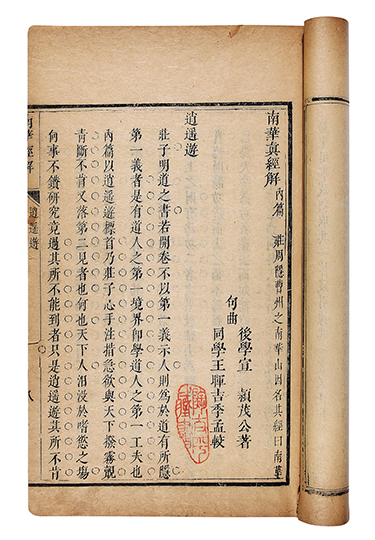 南華真經解 內篇 莊周隱曹州之南華山因名其經曰南華
後學宣 穎茂公著
句曲
同學王暉吉季孟較
逍遥遊
莊子明道之書若開卷不以第一義示人則為於道有所隱
第一義者是有道人之第一境界卽學道人之第一工夫也
內篇以逍遥遊標首乃莊子心手注措急欲與天下撥霧覩
青斷不肯又落第二見者也何也天下人汨沒於嗜慾之場
何事不鑽研究竟過其所不能到者只是逍遥遊其所不肯
南華經解
逍遥遊
八